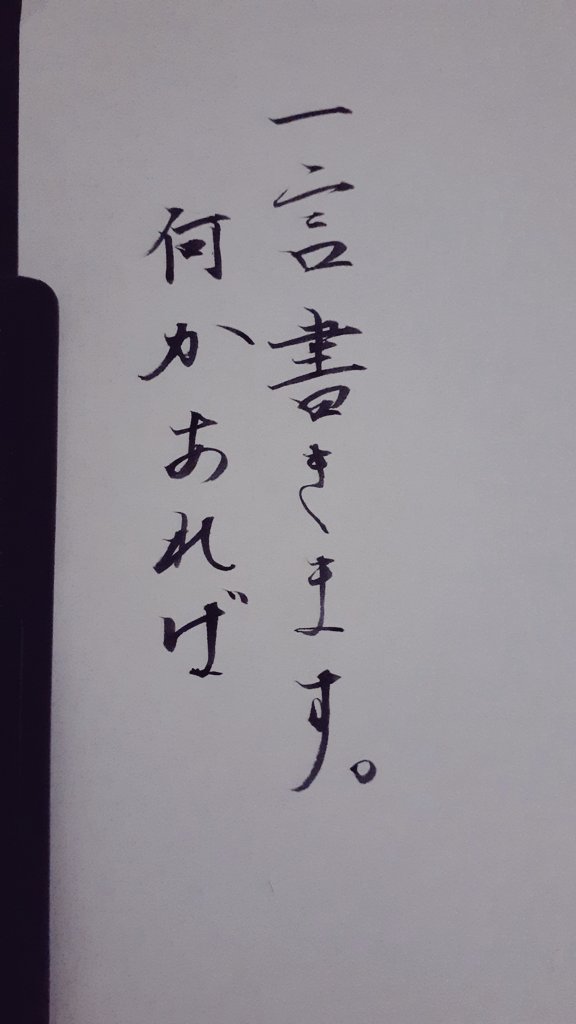 一言書きます。
何かあれば